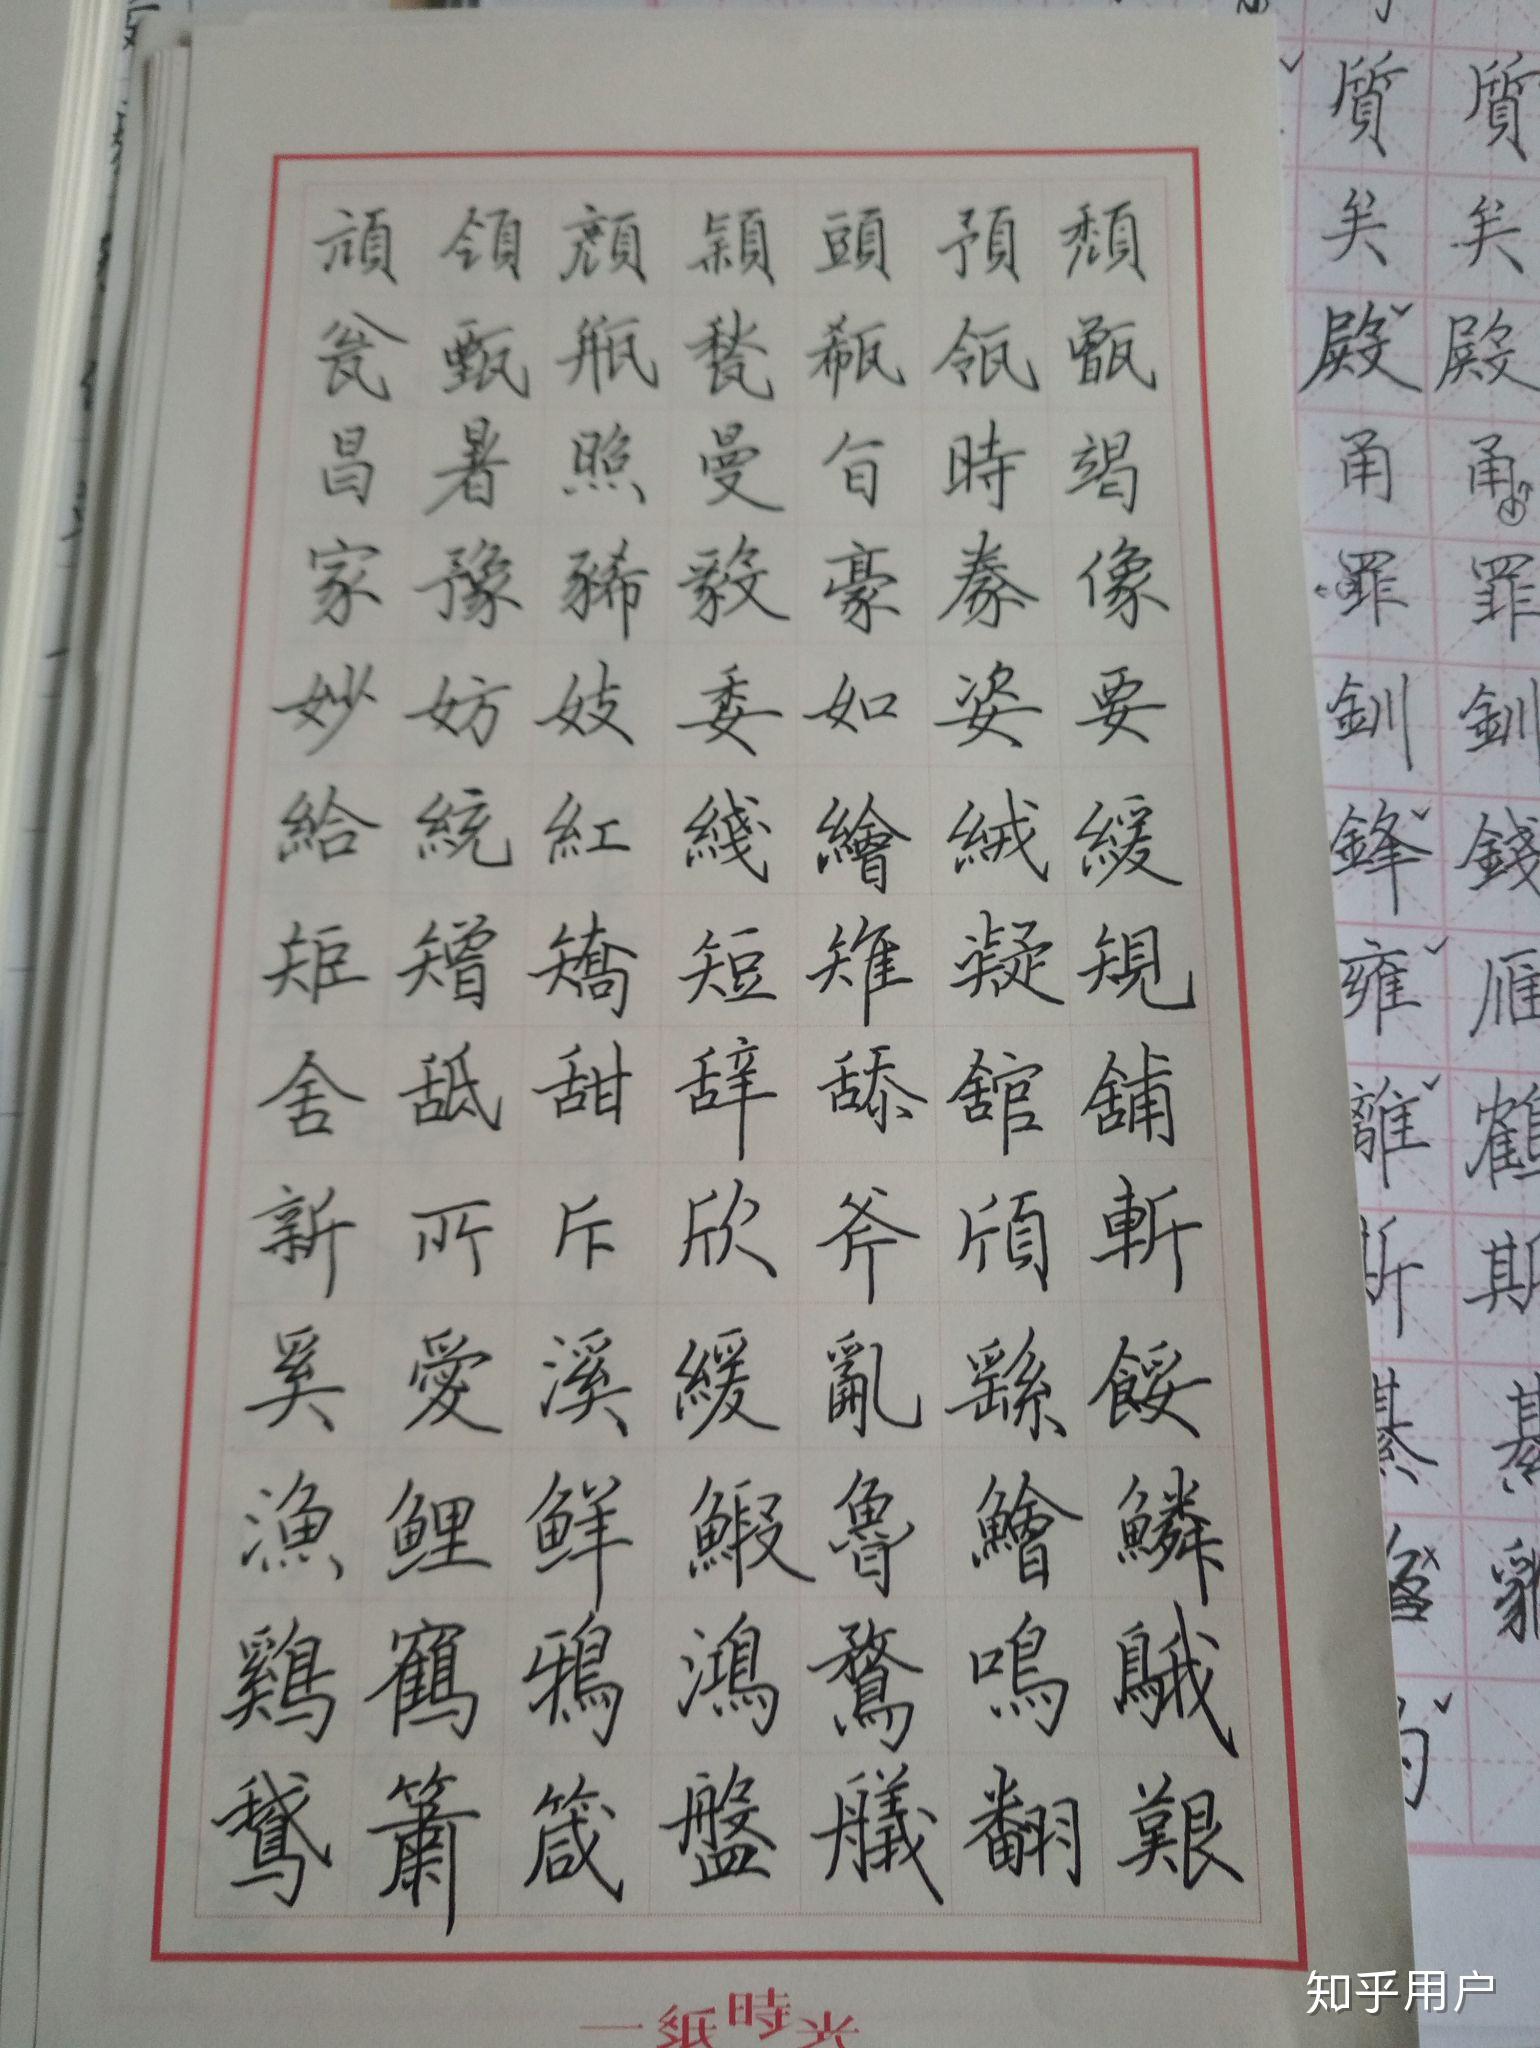 頑領顔穎頭預頹
瓮甄瓶甃瓻瓴甑
昌暑照曼旨時竭
家豫豨毅豪豢像
妙妨妓委如姿要
給統紅綫繪絨緩
矩矰矯短雉凝規
舍舐甜辞舔舘舖
新所斤欣斧頎斬
奚愛溪緩亂繇餒
漁鯉鮮鰕魯鱠鱗
鷄鶴鴉鴻鶩鳴鵝
鵞簫箴盤艤翻艱
一紙時光
質質
矣矣
殿殿
甬甬
罪罪
釧釧
鋒錢
雍雁
離鶴
斯斯
綦綦
知乎用户